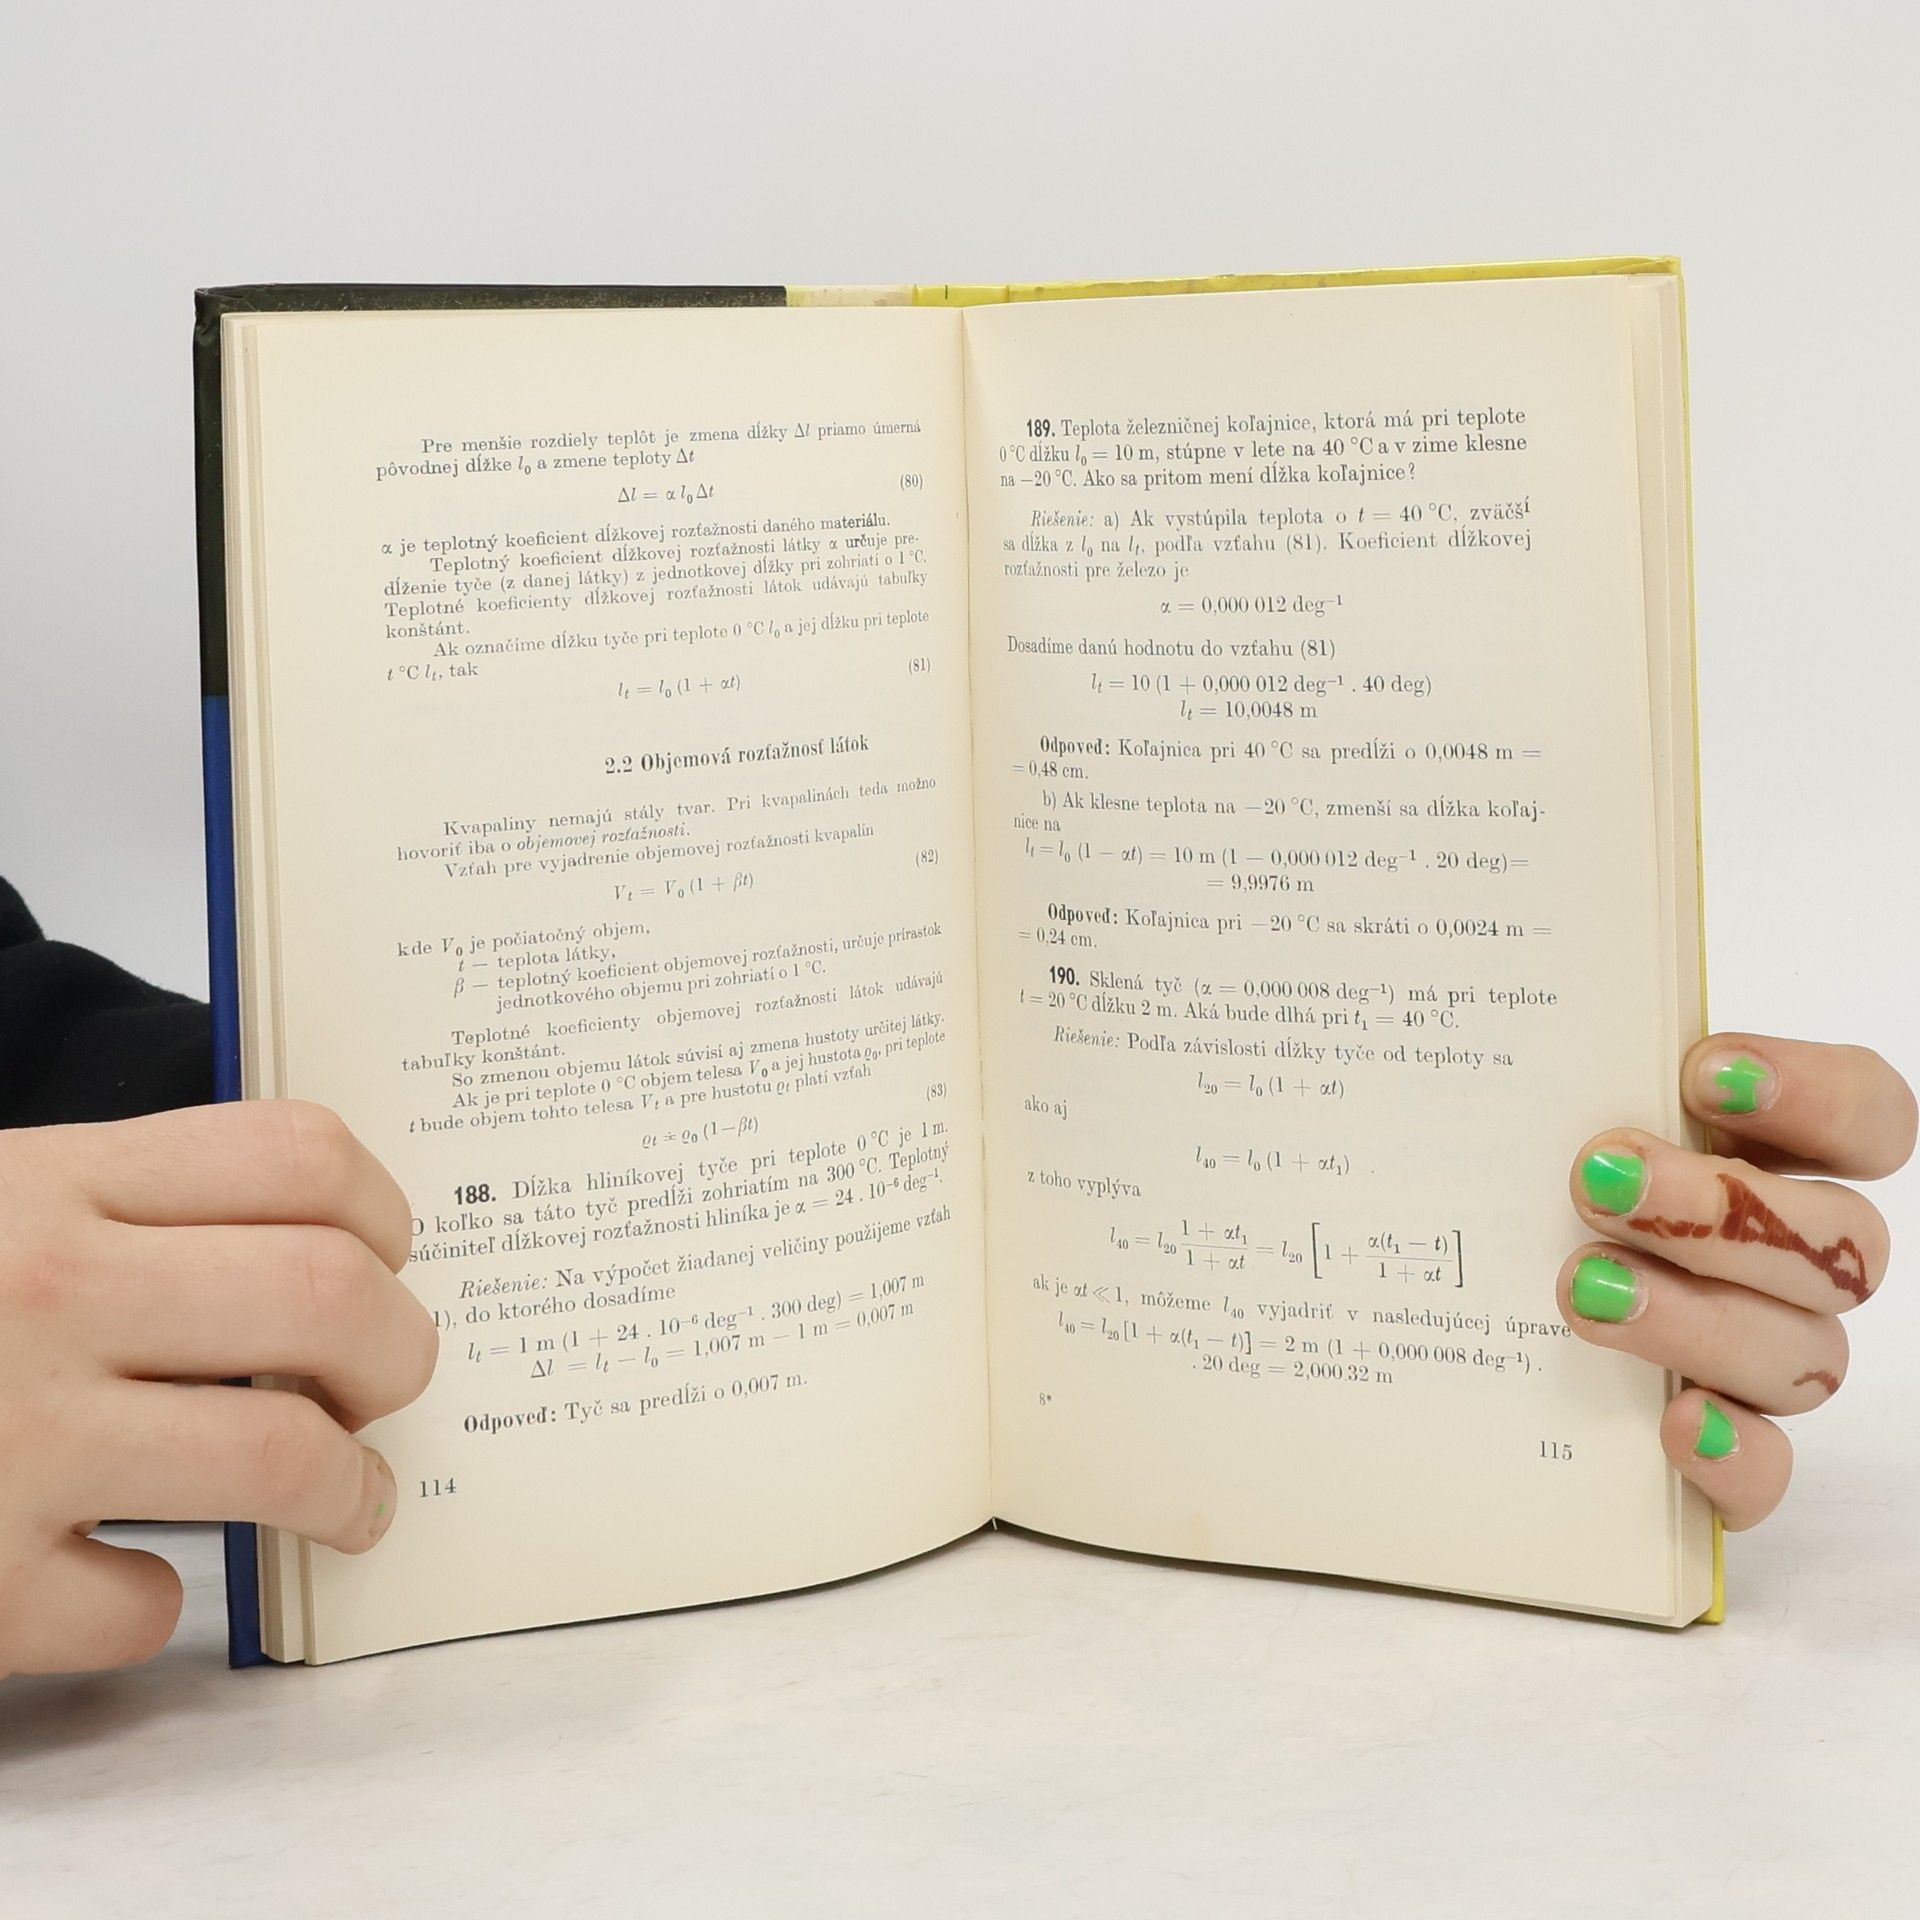 Pre menšie rozdiely teplôt je zmena dĺžky Δl priamo úmerná
pôvodnej dĺžke l₀ a zmene teploty Δt
Δl = α l₀ Δt (80)
α je teplotný koeficient dĺžkovej rozťažnosti daného materiálu.
Teplotný koeficient dĺžkovej rozťažnosti látky α určuje pre-
dĺženie tyče (z danej látky) z jednotkovej dĺžky pri zohriatí o 1 °C.
Teplotné koeficienty dĺžkovej rozťažnosti látok udávajú tabuľky
konštánt.
Ak označíme dĺžku tyče pri teplote 0 °C l₀ a jej dĺžku pri teplote
t °C lₜ, tak
lₜ = l₀ (1 + αt) (81)
2.2 Objemová rozťažnosť látok
Kvapaliny nemajú stály tvar. Pri kvapalinách teda možno
hovoriť iba o objemovej rozťažnosti.
Vzťah pre vyjadrenie objemovej rozťažnosti kvapalín
Vₜ = V₀ (1 + βt) (82)
kde V₀ je počiatočný objem,
t — teplota látky,
β — teplotný koeficient objemovej rozťažnosti, určuje prírastok
jednotkového objemu pri zohriatí o 1 °C.
Teplotné koeficienty objemovej rozťažnosti látok udávajú
tabuľky konštánt.
So zmenou objemu látok súvisí aj zmena hustoty určitej látky.
Ak je pri teplote 0 °C objem telesa V₀ a jej hustota ϱ₀, pri teplote
t bude objem tohto telesa Vₜ a pre hustotu ϱₜ platí vzťah
ϱₜ ≐ ϱ₀ (1—βt) (83)
188. Dĺžka hliníkovej tyče pri teplote 0 °C je 1 m.
O koľko sa táto tyč predĺži zohriatím na 300 °C. Teplotný
súčiniteľ dĺžkovej rozťažnosti hliníka je α = 24 . 10⁻⁶ deg⁻¹.
Riešenie: Na výpočet žiadanej veličiny použijeme vzťah
1), do ktorého dosadíme
lₜ = 1 m (1 + 24 . 10⁻⁶ deg⁻¹ . 300 deg) = 1,007 m
Δl = lₜ — l₀ = 1,007 m — 1 m = 0,007 m
Odpoveď: Tyč sa predĺži o 0,007 m.
114
189. Teplota železničnej koľajnice, ktorá má pri teplote
0 °C dĺžku l₀ = 10 m, stúpne v lete na 40 °C a v zime klesne
na —20 °C. Ako sa pritom mení dĺžka koľajnice?
Riešenie: a) Ak vystúpila teplota o t = 40 °C, zväčší
sa dĺžka z l₀ na lₜ, podľa vzťahu (81). Koeficient dĺžkovej
rozťažnosti pre železo je
α = 0,000 012 deg⁻¹
Dosadíme danú hodnotu do vzťahu (81)
lₜ = 10 (1 + 0,000 012 deg⁻¹ . 40 deg)
lₜ = 10,0048 m
Odpoveď: Koľajnica pri 40 °C sa predĺži o 0,0048 m =
= 0,48 cm.
b) Ak klesne teplota na —20 °C, zmenší sa dĺžka koľaj-
nice na
lₜ = l₀ (1 — αt) = 10 m (1 — 0,000 012 deg⁻¹ . 20 deg)=
= 9,9976 m
Odpoveď: Koľajnica pri —20 °C sa skráti o 0,0024 m =
= 0,24 cm.
190. Sklená tyč (α = 0,000 008 deg⁻¹) má pri teplote
t = 20 °C dĺžku 2 m. Aká bude dlhá pri t₁ = 40 °C.
Riešenie: Podľa závislosti dĺžky tyče od teploty sa
l₂₀ = l₀ (1 + αt)
ako aj
l₄₀ = l₀ (1 + αt₁) .
z toho vyplýva
l₄₀ = l₂₀ (1 + αt₁)/(1 + αt) = l₂₀ [1 + α(t₁ — t)/(1 + αt)]
ak je αt ≪ 1, môžeme l₄₀ vyjadriť v nasledujúcej úprave
l₄₀ = l₂₀ [1 + α(t₁ — t)] = 2 m (1 + 0,000 008 deg⁻¹) .
. 20 deg = 2,000 32 m
8*
115